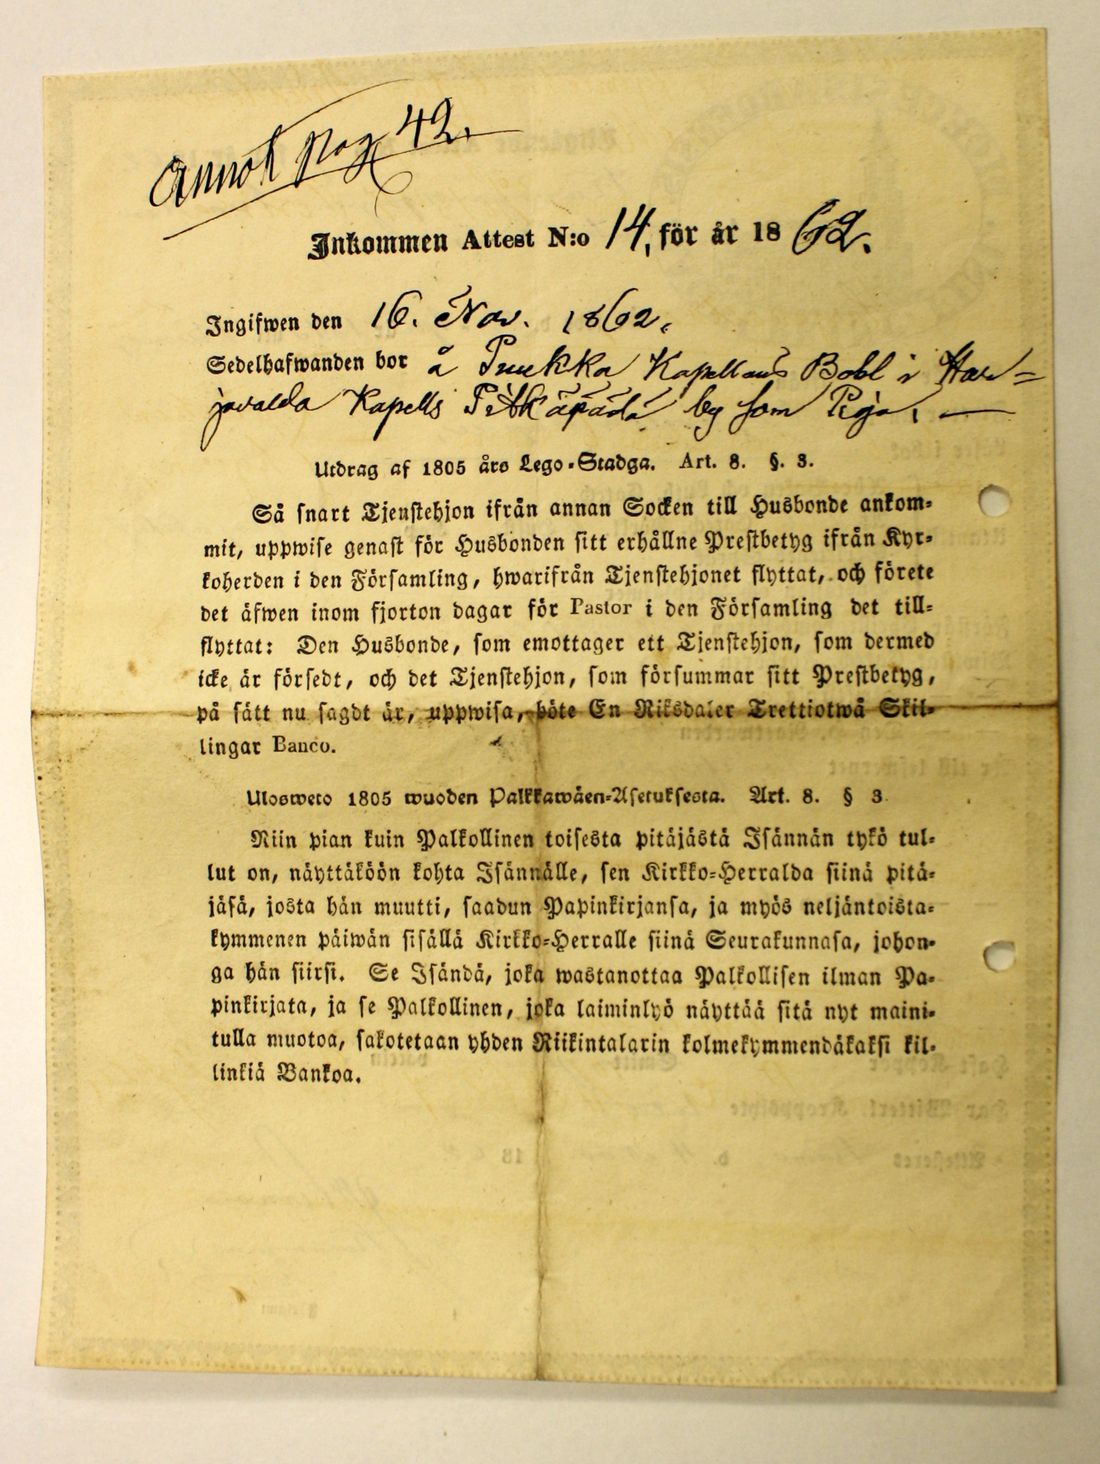 Annot pag 42.
Inkommen Attest N:o 14, för år 1862.
Ingifwen den 16. Nov. 1862.
Sedelhafwanden bor å Kapellans Bohl i Har=
javalda Kapells Pitkäpäälä by som Piga.
Utdrag af 1805 års Lego-Stadga. Art. 8. §. 3.
Så snart Tjenstehjon ifrån annan Socken till Husbonde ankom-
mit, uppwise genast för Husbonden sitt erhållne Prestbetyg ifrån Kyr-
koherden i den Församling, hwarifrån Tjenstehjonet flyttat, och förete
det äfwen inom fjorton dagar för Pastor i den Församling det till-
flyttat: Den Husbonde, som emottager ett Tjenstehjon, som dermed
icke är försedt, och det Tjenstehjon, som försummar sitt Prestbetyg,
på sätt nu sagdt är, uppwisa, böte En Riksdaler Trettiotwå Skil-
lingar Banco.
Ulosweto 1805 wuoden Palkkawäen-Asetuksesta. Art. 8. § 3
Niin pian kuin Palkollinen toisesta pitäjästä Isännän tykö tul-
lut on, näyttäköön kohta Isännälle, sen Kirkko-Herralda siinä pitä-
jäsä, josta hän muutti, saadun Papinkirjansa, ja myös neljäntoista-
kymmenen päiwän sisällä Kirkko-Herralle siinä Seurakunnasa, johon-
ga hän siirsi. Se Isändä, joka wastanottaa Palkollisen ilman Pa-
pinkirjata, ja se Palkollinen, joka laiminlyö näyttää sitä nyt maini-
tulla muotoa, sakotetaan yhden Riikintalarin kolmekymmendäkaksi kil-
linkiä Bankoa.